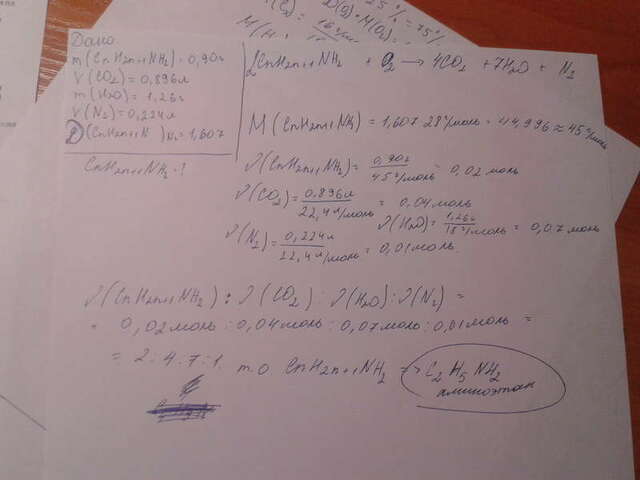 25% = 75%
Дано:
m(CnH2n+1NH2) = 0,90г
V(CO2) = 0,896л
m(H2O) = 1,26г
V(N2) = 0,224л
D(CnH2n+1N )N2 = 1,607
CnH2n+1NH2 - ?
2CnH2n+1NH2 + O2 → 4CO2 + 7H2O + N2
M(CnH2n+1NH2) = 1,607 28г/моль = 44,996 ≈ 45г/моль
ν(CnH2n+1NH2) = 0,90г / 45г/моль = 0,02 моль
ν(CO2) = 0,896л / 22,4л/моль = 0,04моль
ν(H2O) = 1,26г / 18г/моль = 0,07 моль
ν(N2) = 0,224л / 22,4л/моль = 0,01моль
ν(CnH2n+1NH2) : ν(CO2) : ν(H2O) : ν(N2) =
= 0,02моль : 0,04моль : 0,07моль : 0,01моль =
= 2:4:7:1 т о CnH2n+1NH2 => C2H5NH2
аминоэтан